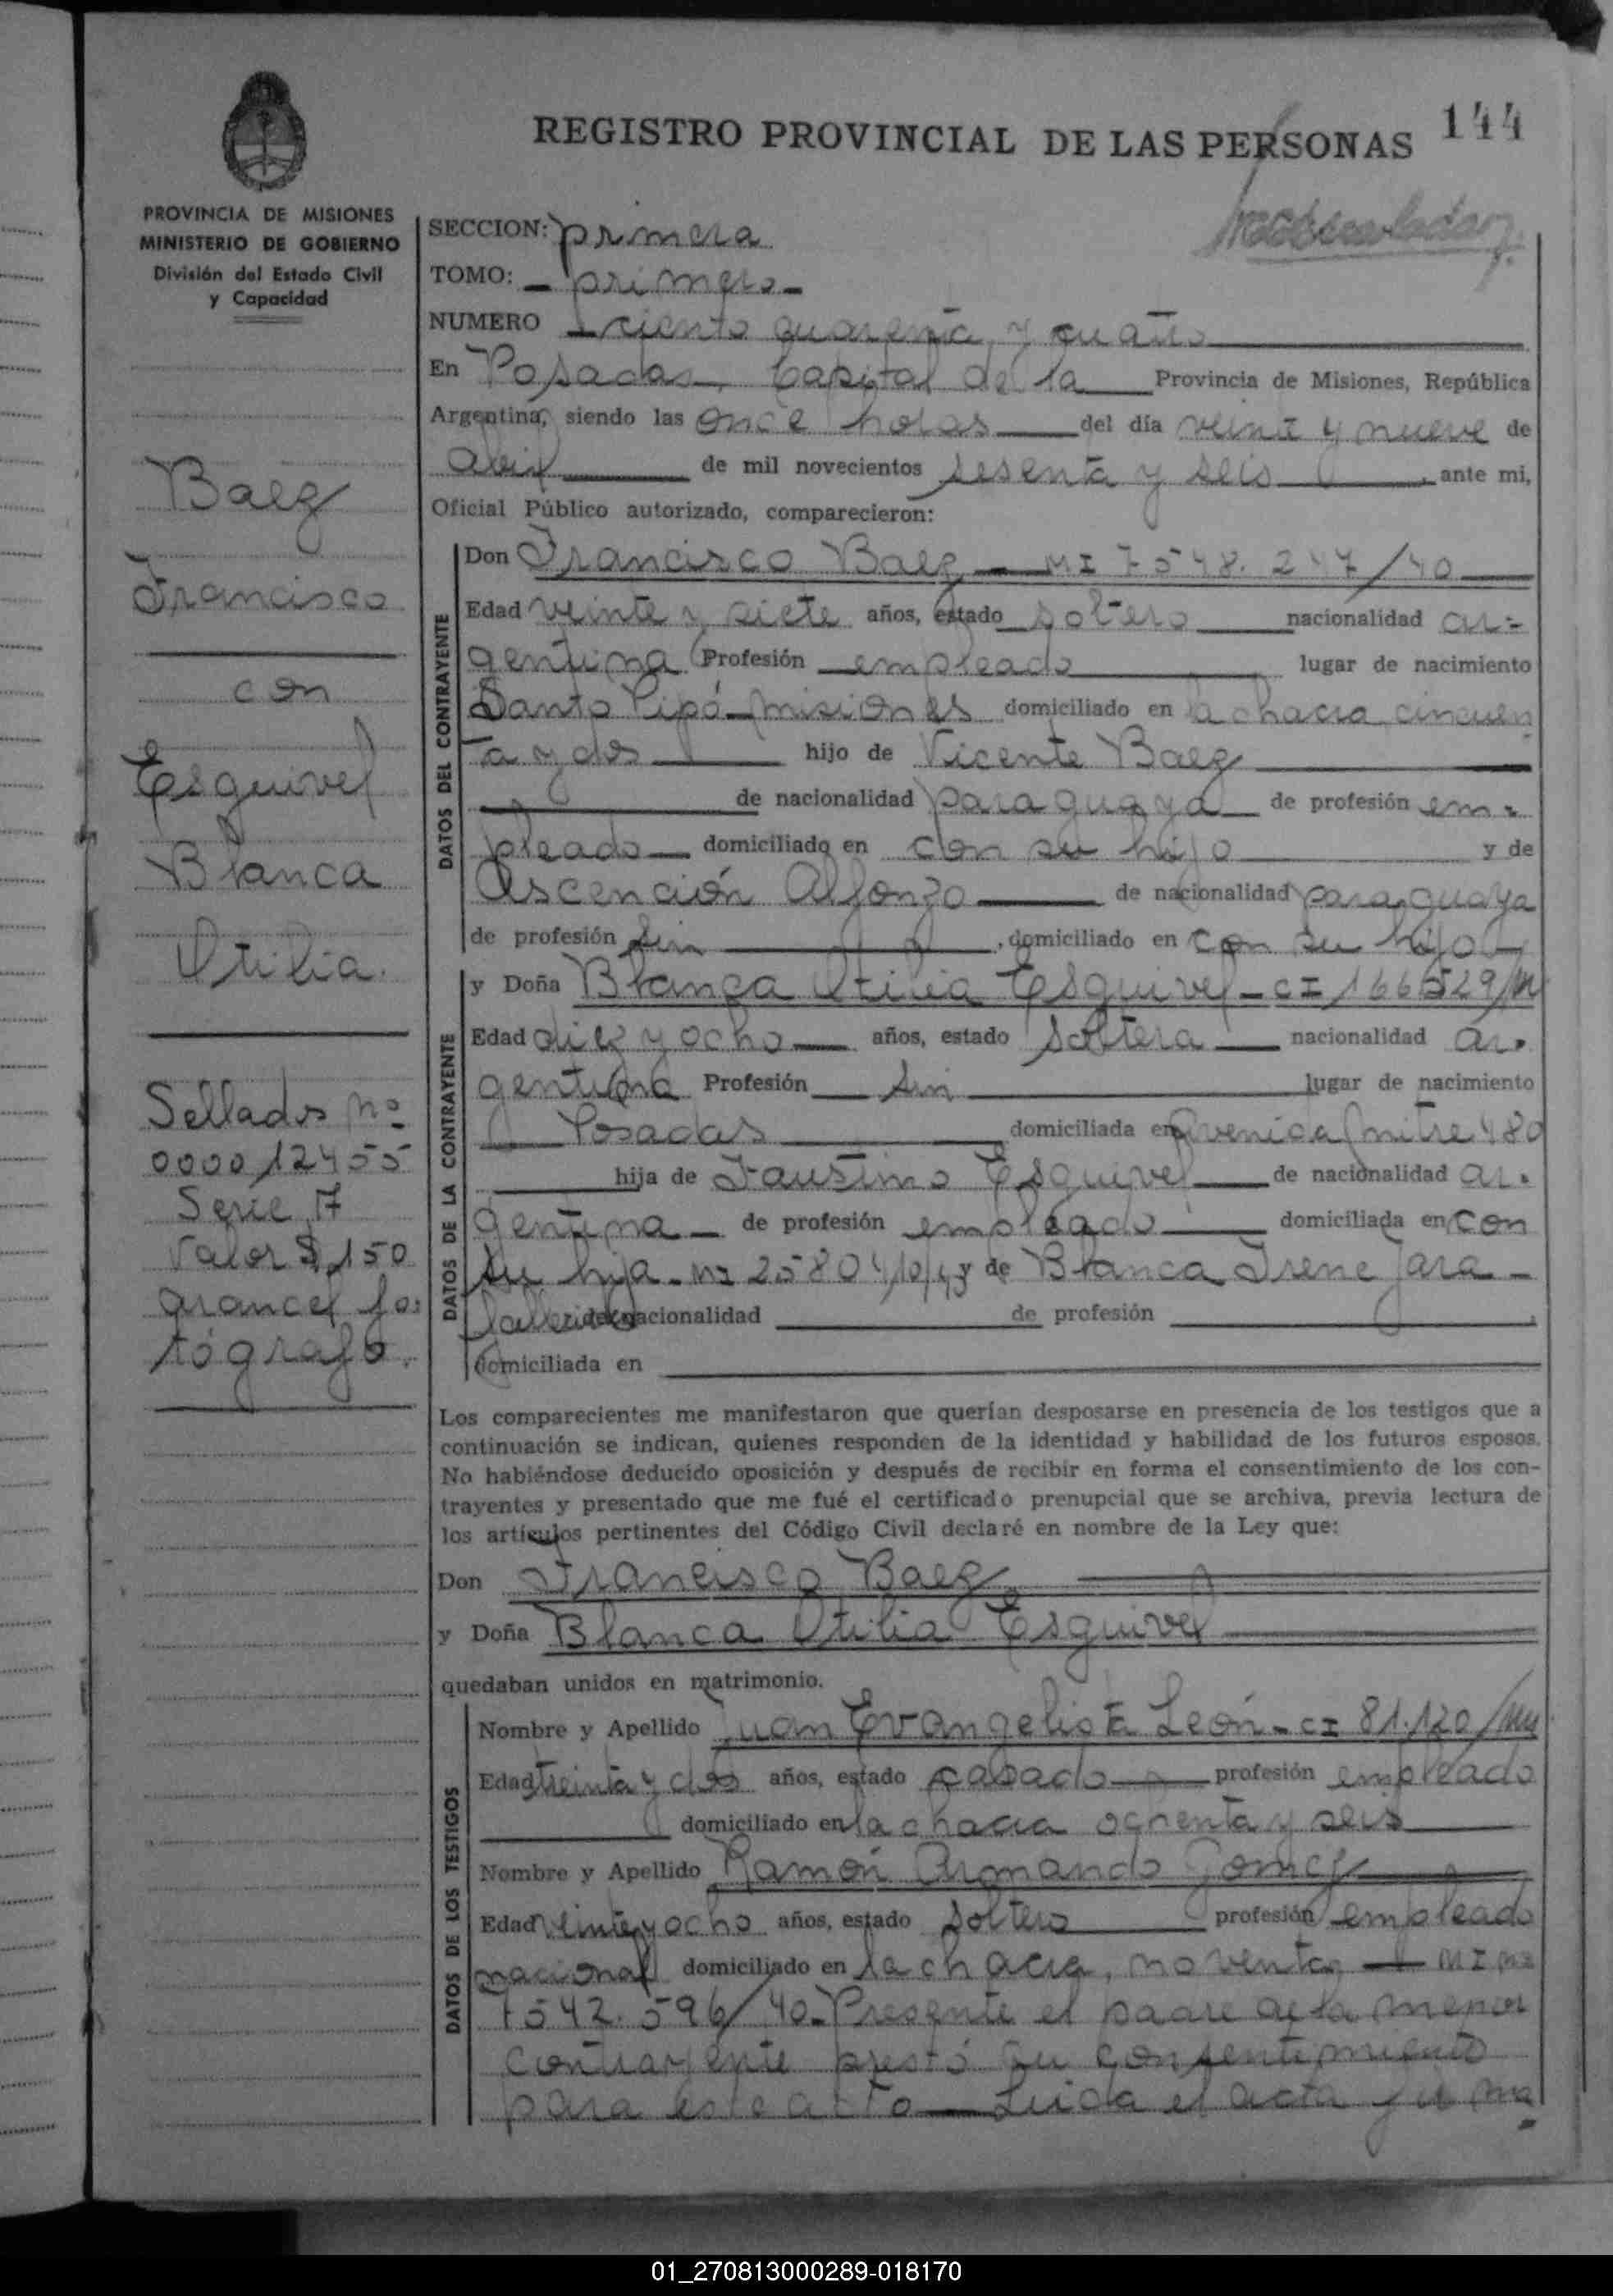 144
REGISTRO PROVINCIAL DE LAS PERSONAS
PROVINCIA DE MISIONES
MINISTERIO DE GOBIERNO
División del Estado Civil
y Capacidad
Baez
Francisco
con
Esquivel
Blanca
Utilia.
Sellados nº
000012455
Serie A
Valor $ 150
arancel fo:
tógrafo.
SECCION: primera
TOMO: - primero -
NUMERO ciento cuarenta y cuatro
En Posadas, Capital de la Provincia de Misiones, República
Argentina, siendo las once horas del día veinte y nueve de
abril de mil novecientos sesenta y seis, ante mi,
Oficial Público autorizado, comparecieron:
DATOS DEL CONTRAYENTE
Don Francisco Baez - MI 7548.247/40
Edad veinte y siete años, estado soltero nacionalidad ar-
gentina Profesión empleado lugar de nacimiento
Santo Pipó - misiones domiciliado en la chacra cincuen
ta y dos hijo de Vicente Baez
de nacionalidad paraguaya de profesión em-
pleado domiciliado en con su hijo y de
Ascención Alfonzo de nacionalidad paraguaya
de profesión sin, domiciliado en con su hijo
DATOS DE LA CONTRAYENTE
y Doña Blanca Utilia Esquivel - CI 166529/M
Edad diez y ocho años, estado soltera nacionalidad ar-
gentina Profesión sin lugar de nacimiento
Posadas domiciliada en Avenida mitre 480
hija de Faustino Esquivel de nacionalidad ar-
gentina - de profesión empleado domiciliada en con
su hija - MI 2580410/43 y de Blanca Irene Jara -
fallecida de nacionalidad de profesión
domiciliada en
Los comparecientes me manifestaron que querían desposarse en presencia de los testigos que a
continuación se indican, quienes responden de la identidad y habilidad de los futuros esposos.
No habiéndose deducido oposición y después de recibir en forma el consentimiento de los con-
trayentes y presentado que me fué el certificado prenupcial que se archiva, previa lectura de
los artículos pertinentes del Código Civil declaré en nombre de la Ley que:
Don Francisco Baez
y Doña Blanca Utilia Esquivel
quedaban unidos en matrimonio.
DATOS DE LOS TESTIGOS
Nombre y Apellido Juan Evangelista León - CI 81.120/
Edad treinta y dos años, estado casado profesión empleado
domiciliado en la chacra ochenta y seis
Nombre y Apellido Ramón Armando Gomez
Edad veinte y ocho años, estado soltero profesión empleado
nacional domiciliado en la chacra, noventa - MI nº
7542.596/40 - Presente el padre de la menor
contrayente prestó su consentimiento
para este acto - Leida el acta
01_270813000289-018170